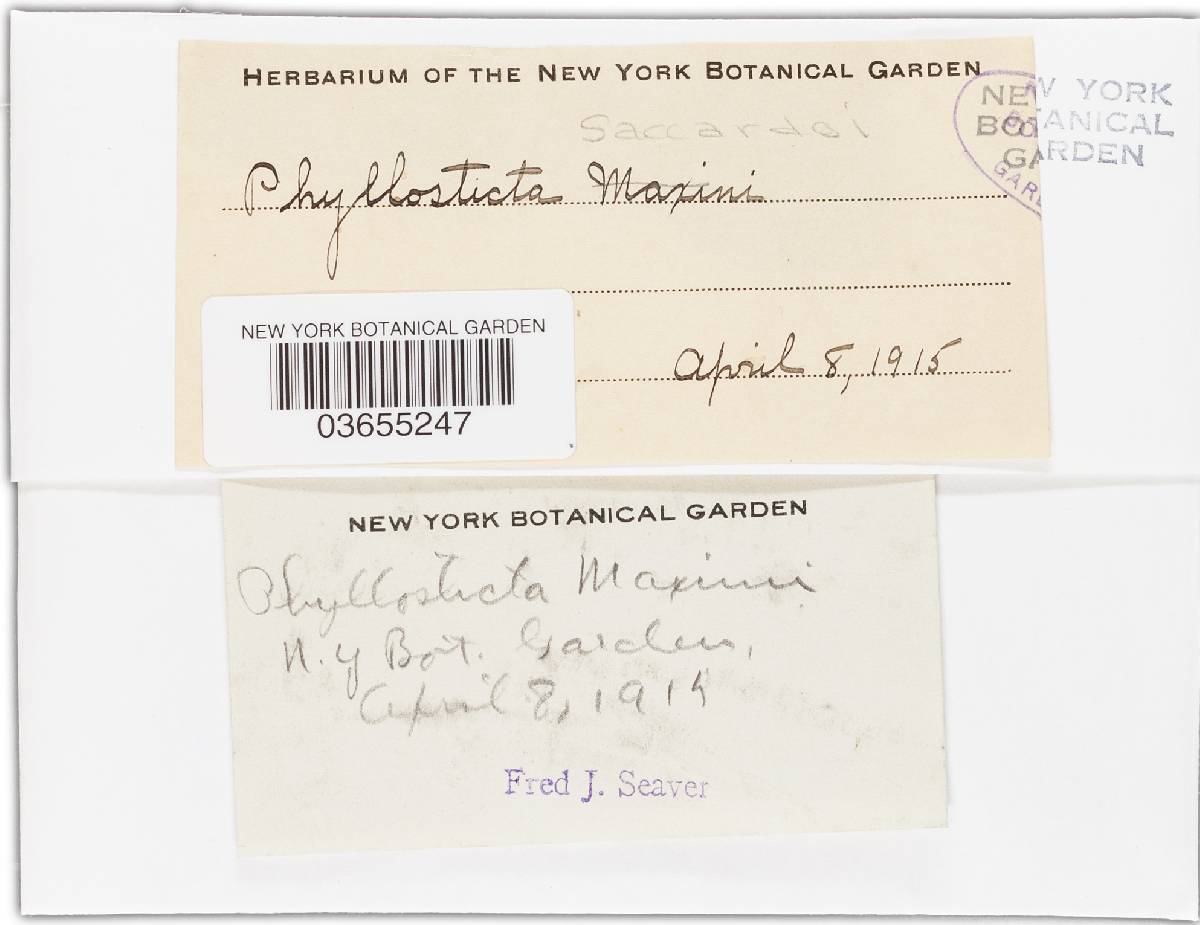 HERBARIUM OF THE NEW YORK BOTANICAL GARDEN
NEW YORK
BOTANICAL
GARDEN
Saccardoi
Phyllosticta Maxini
NEW YORK BOTANICAL GARDEN
03655247
April 8, 1915
NEW YORK BOTANICAL GARDEN
Phyllosticta Maximi
N.Y Bot. Garden,
April 8, 1915
Fred J. Seaver